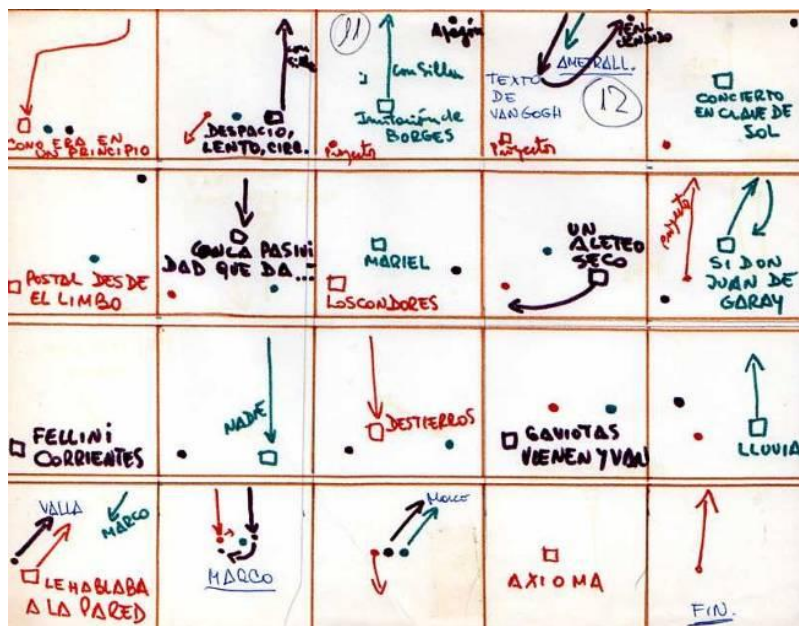 COMO ERA EN
UN PRINCIPIO
con
Silla
DESPACIO,
LENTO, CIRC.
11
Apagón
con Silla
Invitación de
BORGES
Proyector
ENCENDIDO
AMETRALL.
TEXTO
DE
VANGOGH
12
Proyector
CONCIERTO
EN CLAVE DE
SOL
POSTAL DESDE
EL LIMBO
CON LA PASIVI
DAD QUE DA...
MARIEL
LOS CONDORES
UN
ALETEO
SECO
SI DON
JUAN DE
GARAY
FELLINI
CORRIENTES
NADIE
DESTIERROS
GAVIOTAS
VIENEN Y VAN
LLUVIA
VALLA
MARCO
LE HABLABA
A LA PARED
MARCO
AXIOMA
FIN.